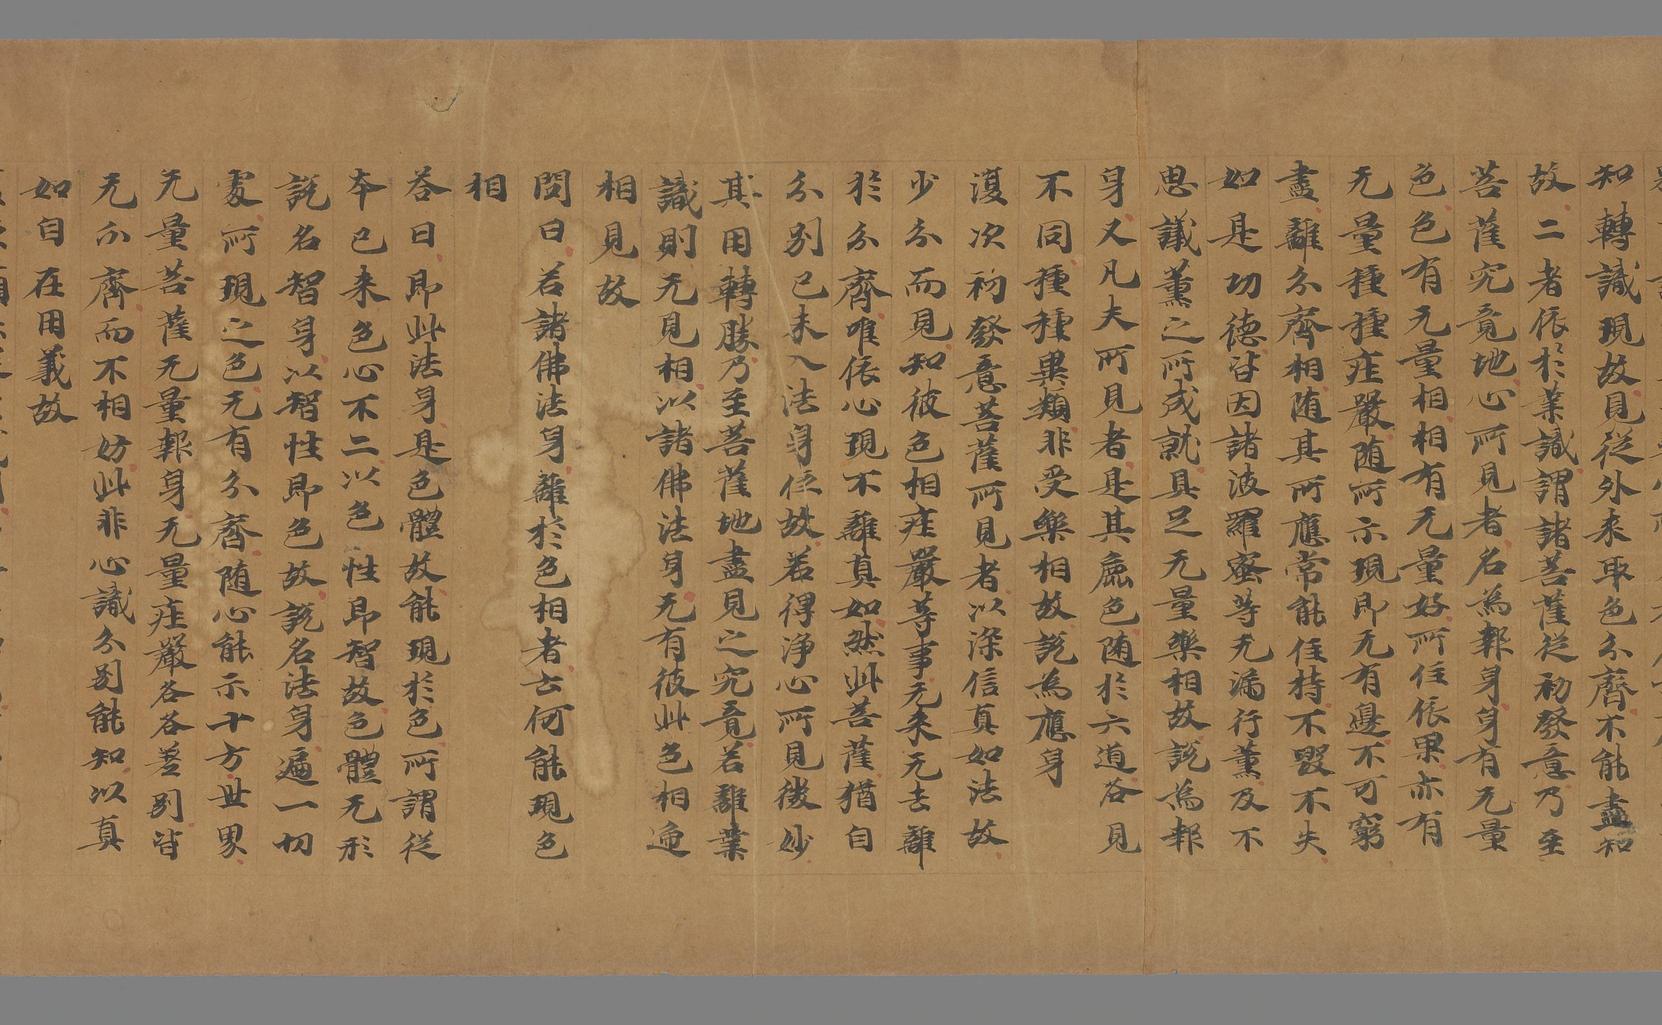 知轉識現故見從外来取色分齊不能盡知
故二者依於業識謂諸菩薩從初發意乃至
菩薩究竟地心所見者名為報身身有无量
色色有无量相相有无量好所住依果亦有
无量種種疰嚴随所示現即无有邊不可窮
盡離分齊相随其所應常能住持不毀不失
如是功德皆因諸波羅蜜等无漏行薰及不
思議薰之所成就具足无量樂相故說為報
身又凡夫所見者是其麁色随於六道各見
不同種種異類非受樂相故說為應身
復次初發意菩薩所見者以深信真如法故
少分而見知彼色相疰嚴等事无来无去離
於分齊唯依心現不離真如然此菩薩猶自
分別已未入法身位故若得淨心所見微妙
其用轉勝乃至菩薩地盡見之究竟若離業
識則无見相以諸佛法身无有彼此色相迊
相見故
問曰若諸佛法身離於色相者云何能現色
相
荅曰即此法身是色體故能現於色所謂從
本已来色心不二以色性即智故色體无形
說名智身以智性即色故說名法身遍一切
處所現之色无有分齊随心能示十方世界
无量菩薩无量報身无量疰嚴各各差別皆
无分齊而不相妨此非心識分別能知以真
如自在用義故